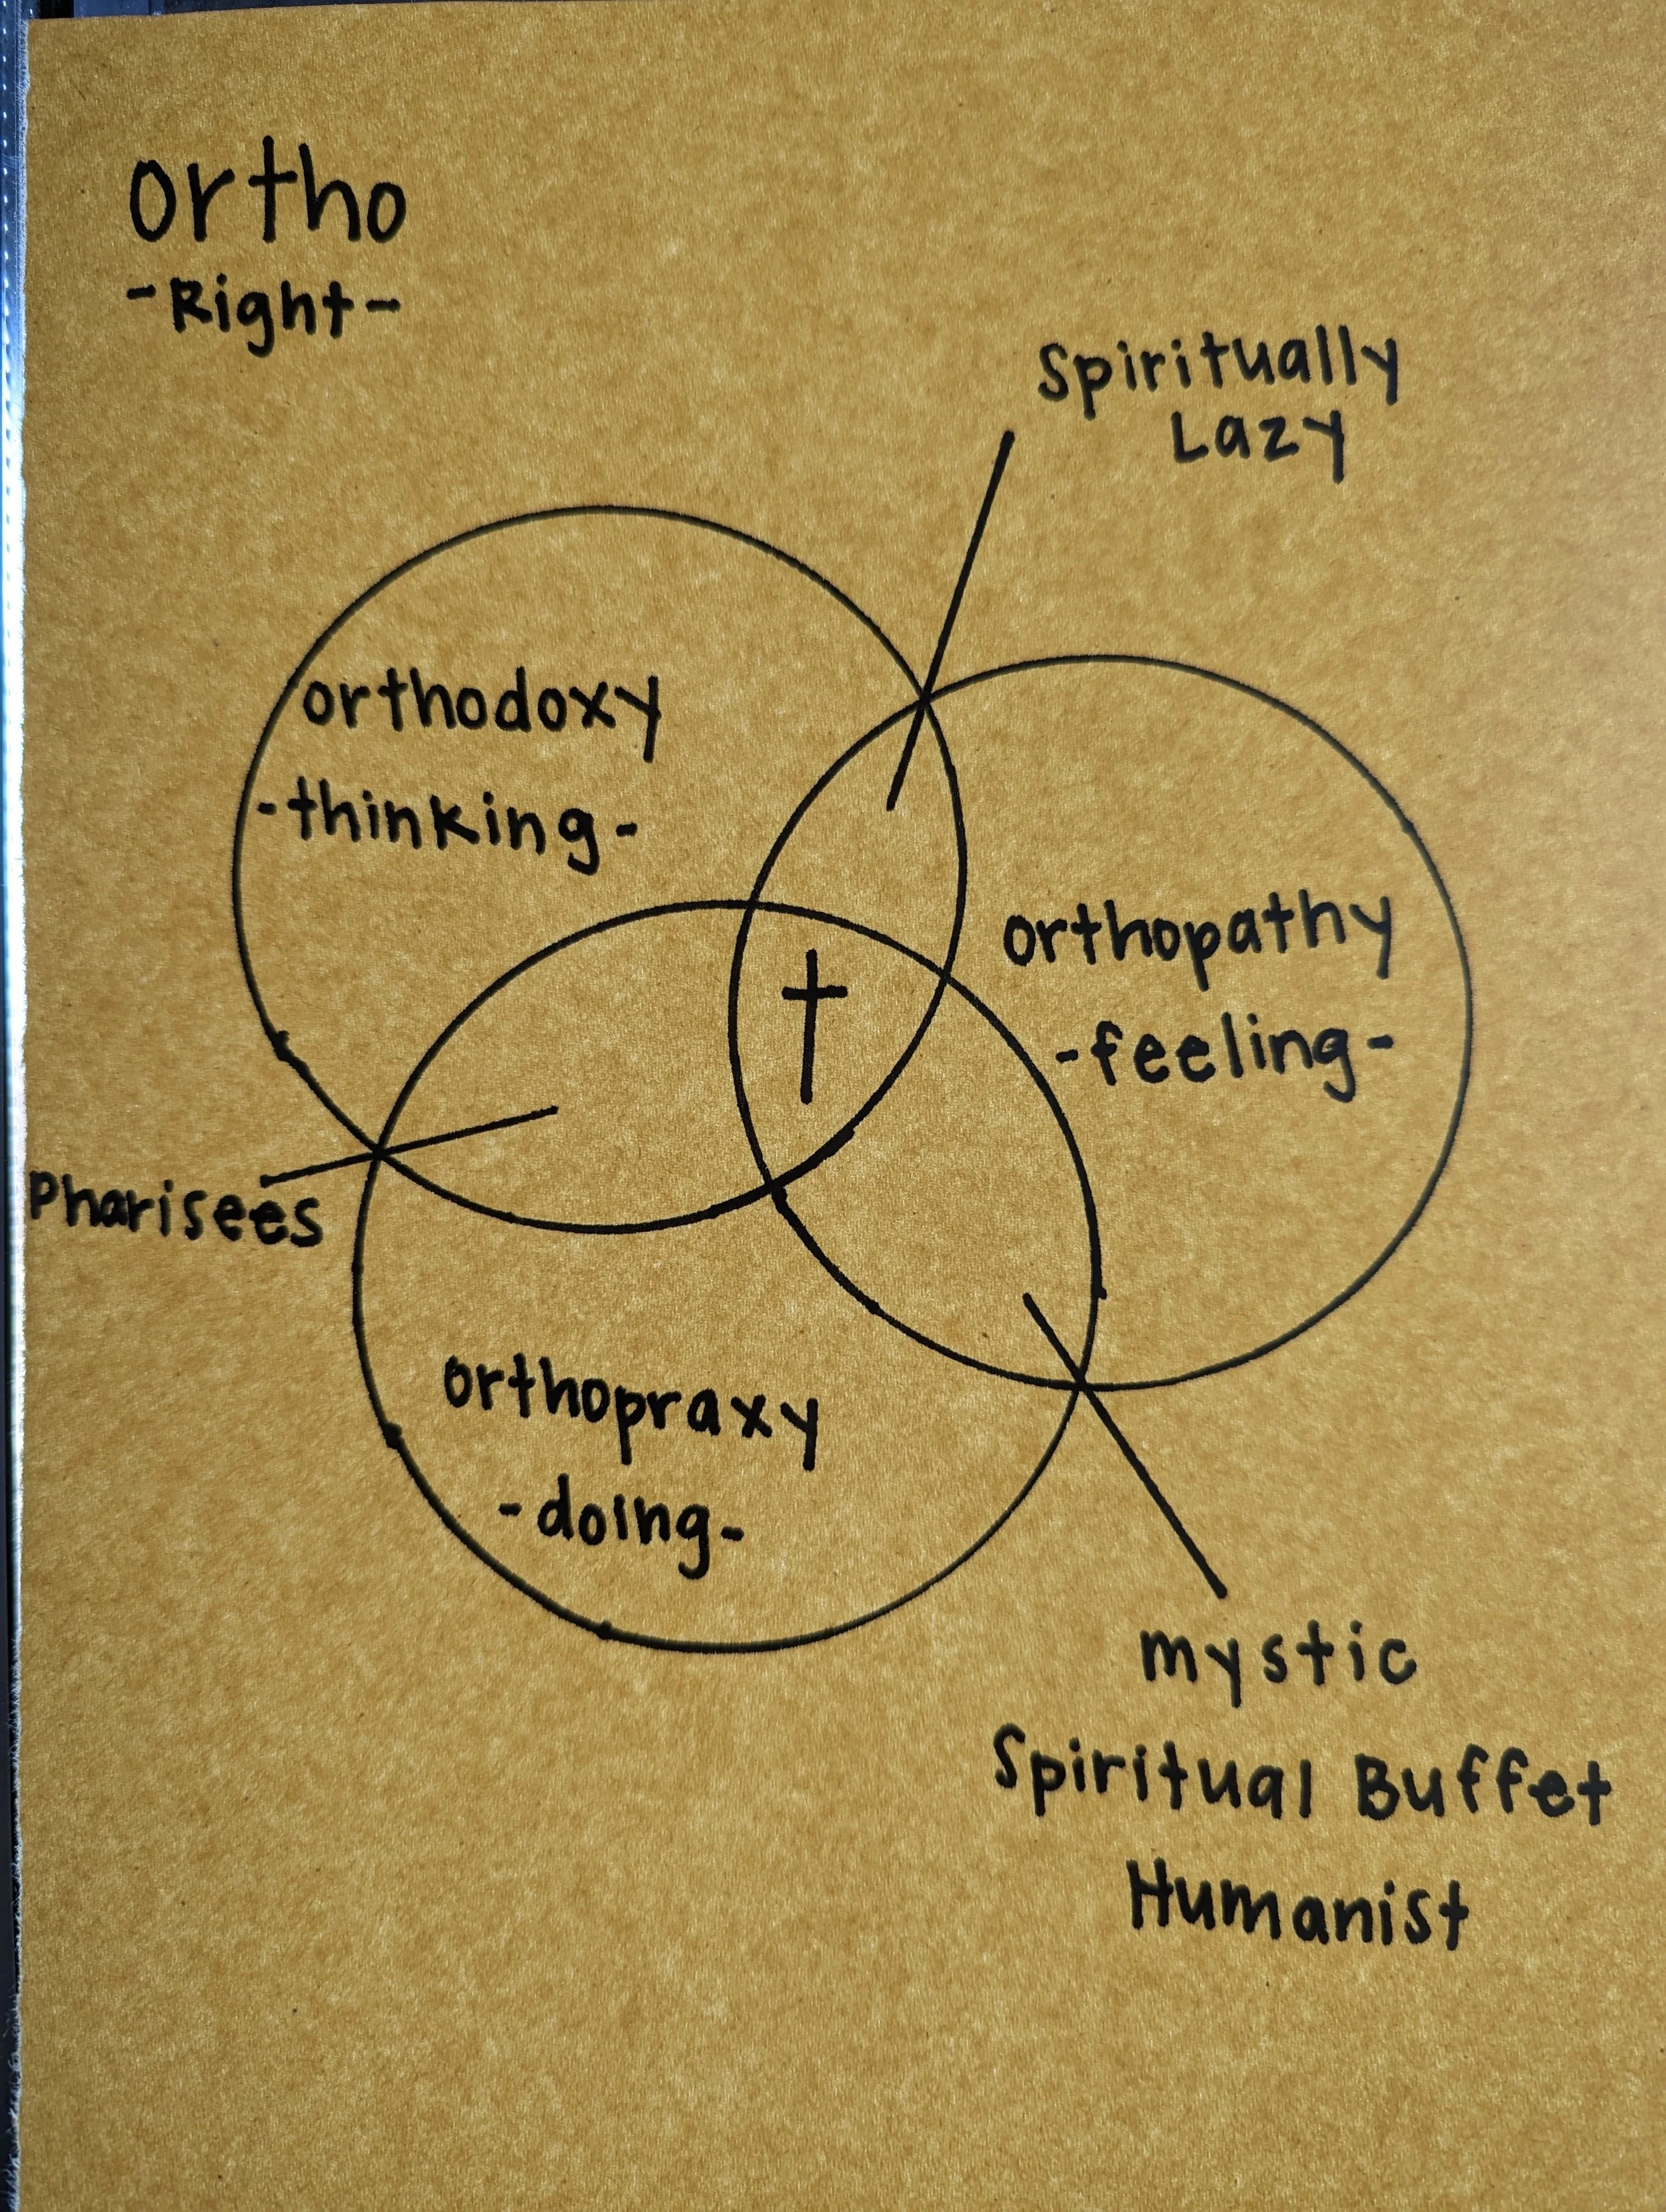 ortho
-Right-
Spiritually
Lazy
orthodoxy
-thinking-
orthopathy
-feeling-
Pharisees
orthopraxy
-doing-
mystic
Spiritual Buffet
Humanist